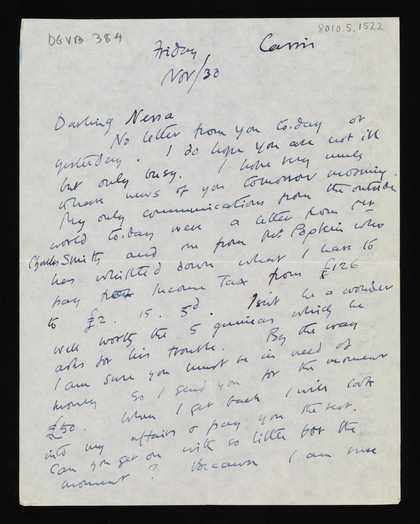 DGVB 384
8010.5.1522
Friday Cassis
Nov/30
Darling Nessa
No letter from you to-day or
yesterday. I do hope you are not ill
but only busy. I hope very much
news of you tomorrow morning.
My only communications from the outside
world to-day were a letter from
Charles Smith, and one from Mr. Popkin who
has whittled down what I have to
pay Income Tax from £126
to £2. 15. 5d. Isn't he a wonder
well worth the 5 guineas which he
asks for his trouble. By the way
I am sure you must be in need of
money so I send you for the moment
£50. When I get back I will look
into my affairs & pay you the rest.
Can you get on with so little for the
moment? Because I am sure